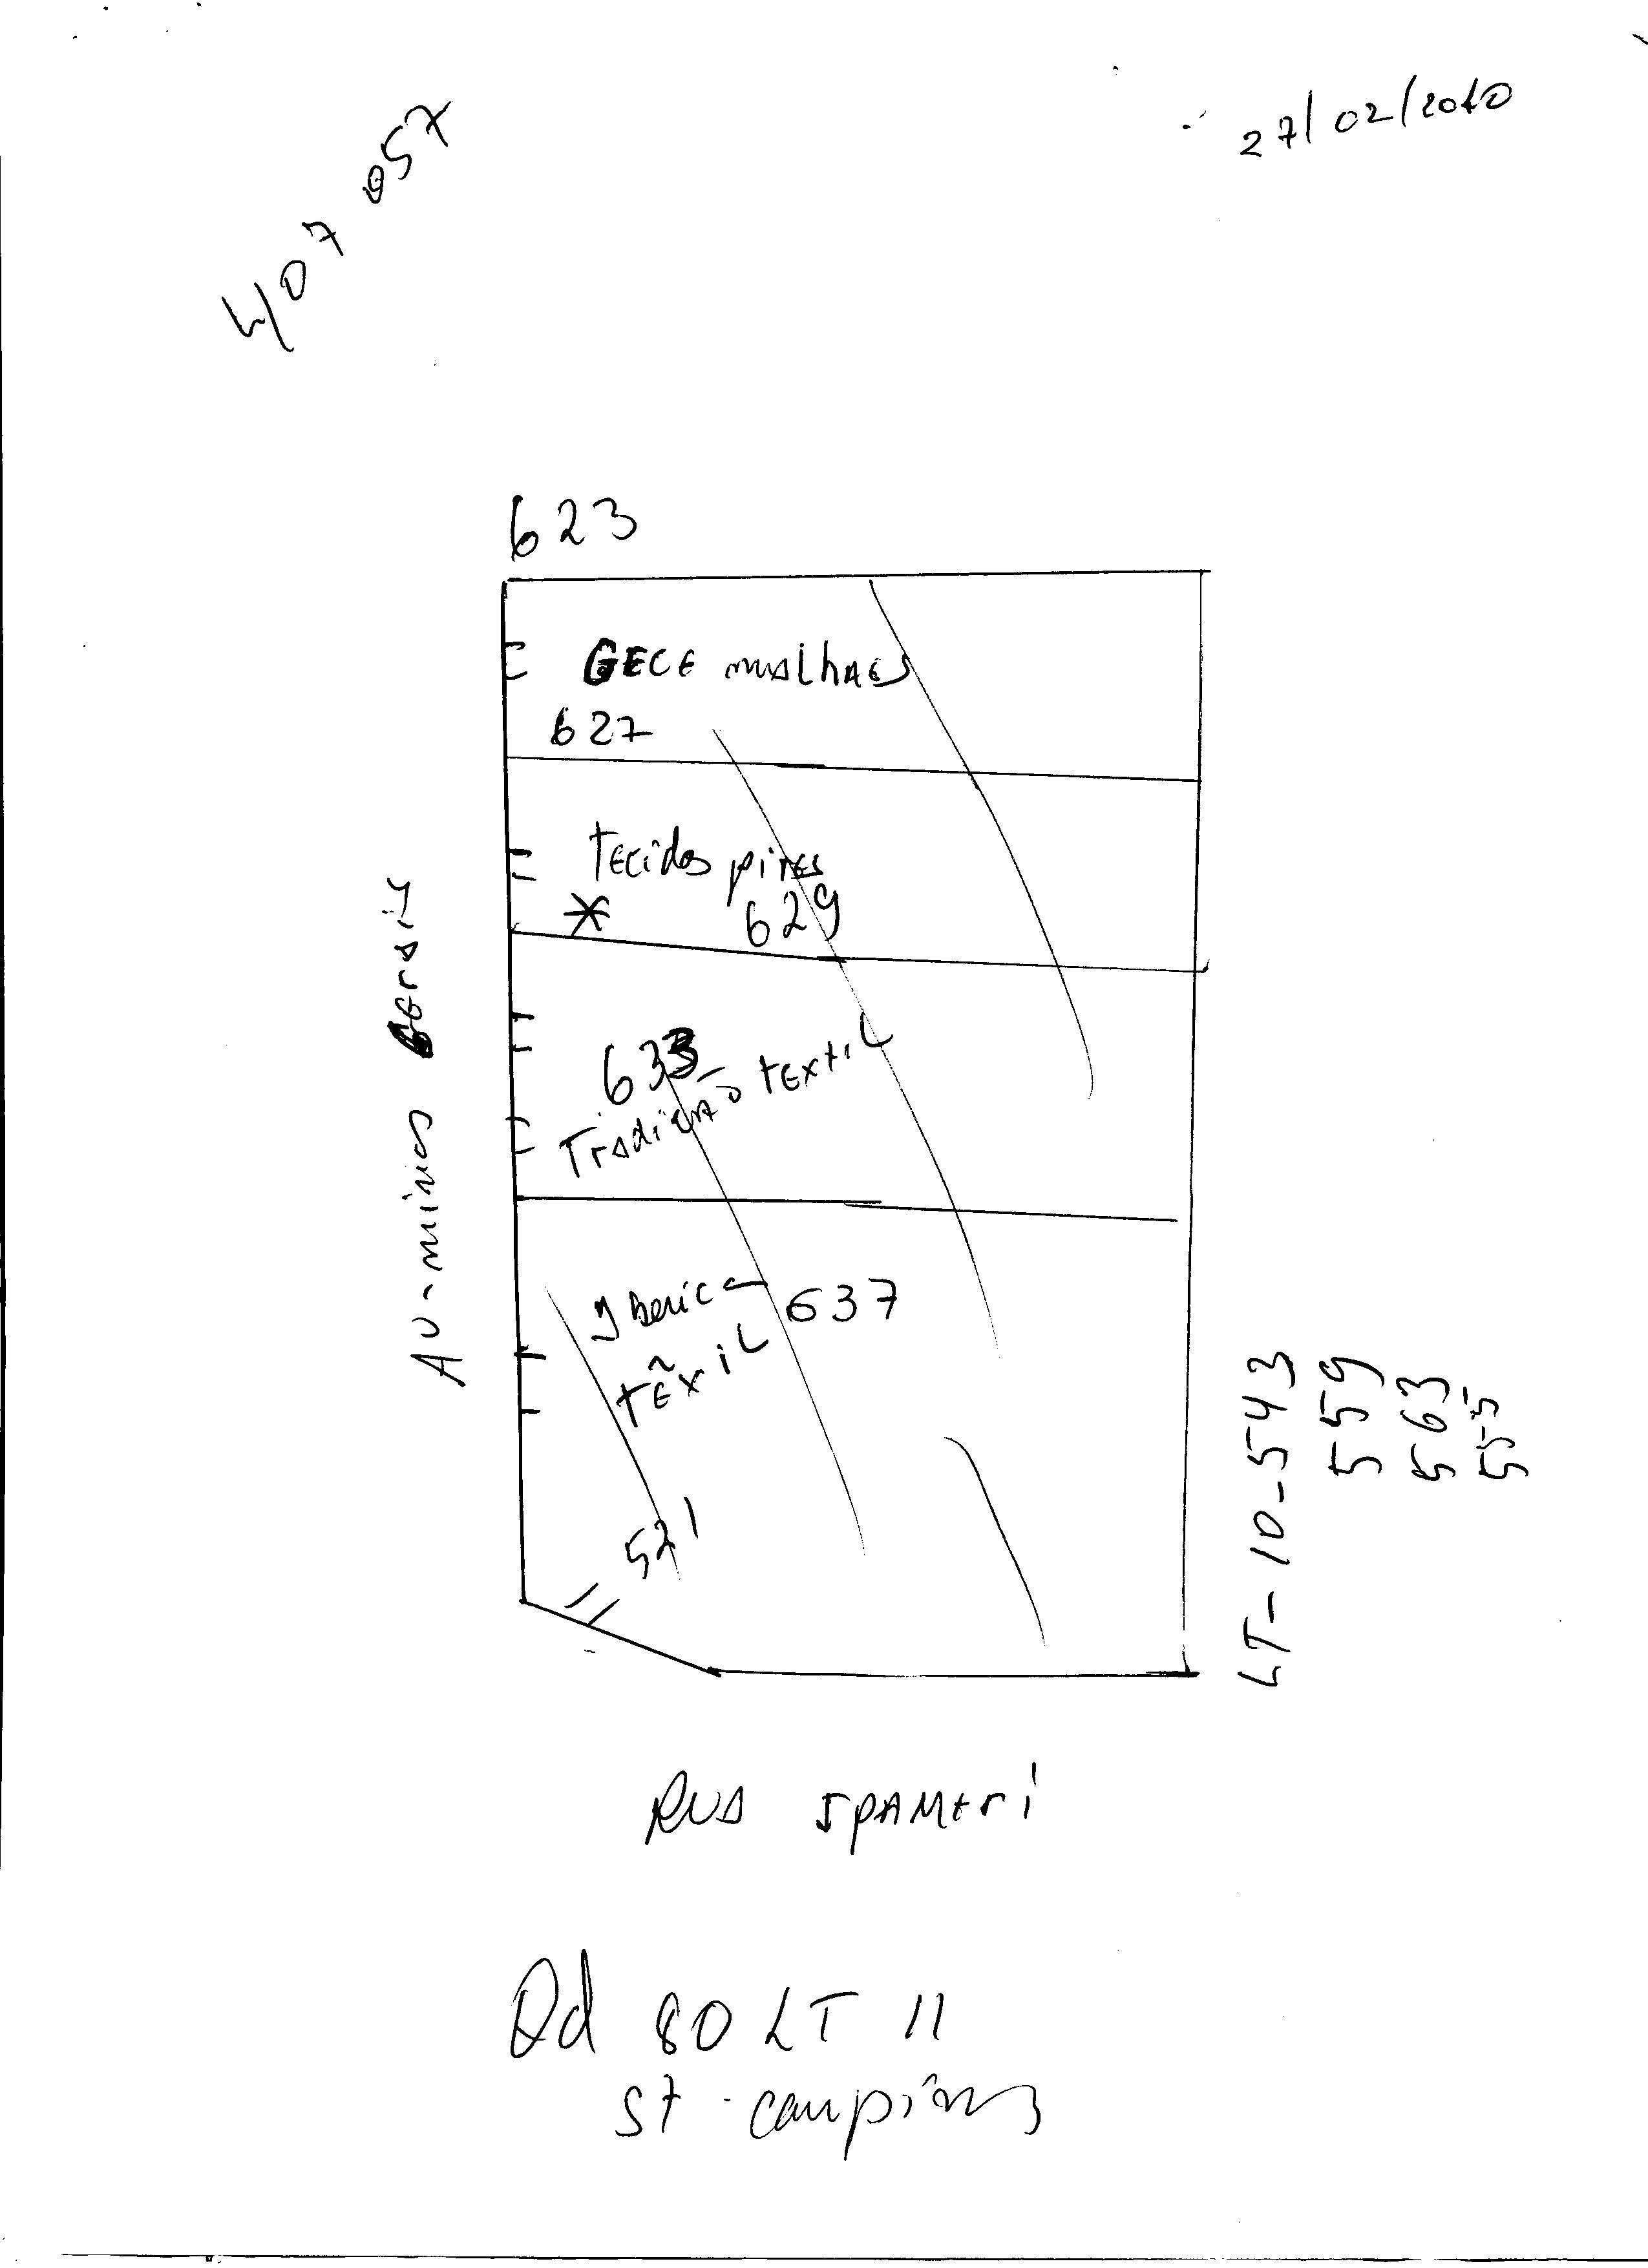 27/02/2010
407 057
623
GECE malhas
627
Tecidos pires
* 629
633
Tradição textil
Av-minas Gerais
Yberica 637
têxtil
521
LT-10-543
559
563
555
RUA IPAMEri
Qd 80 LT 11
St. campinas